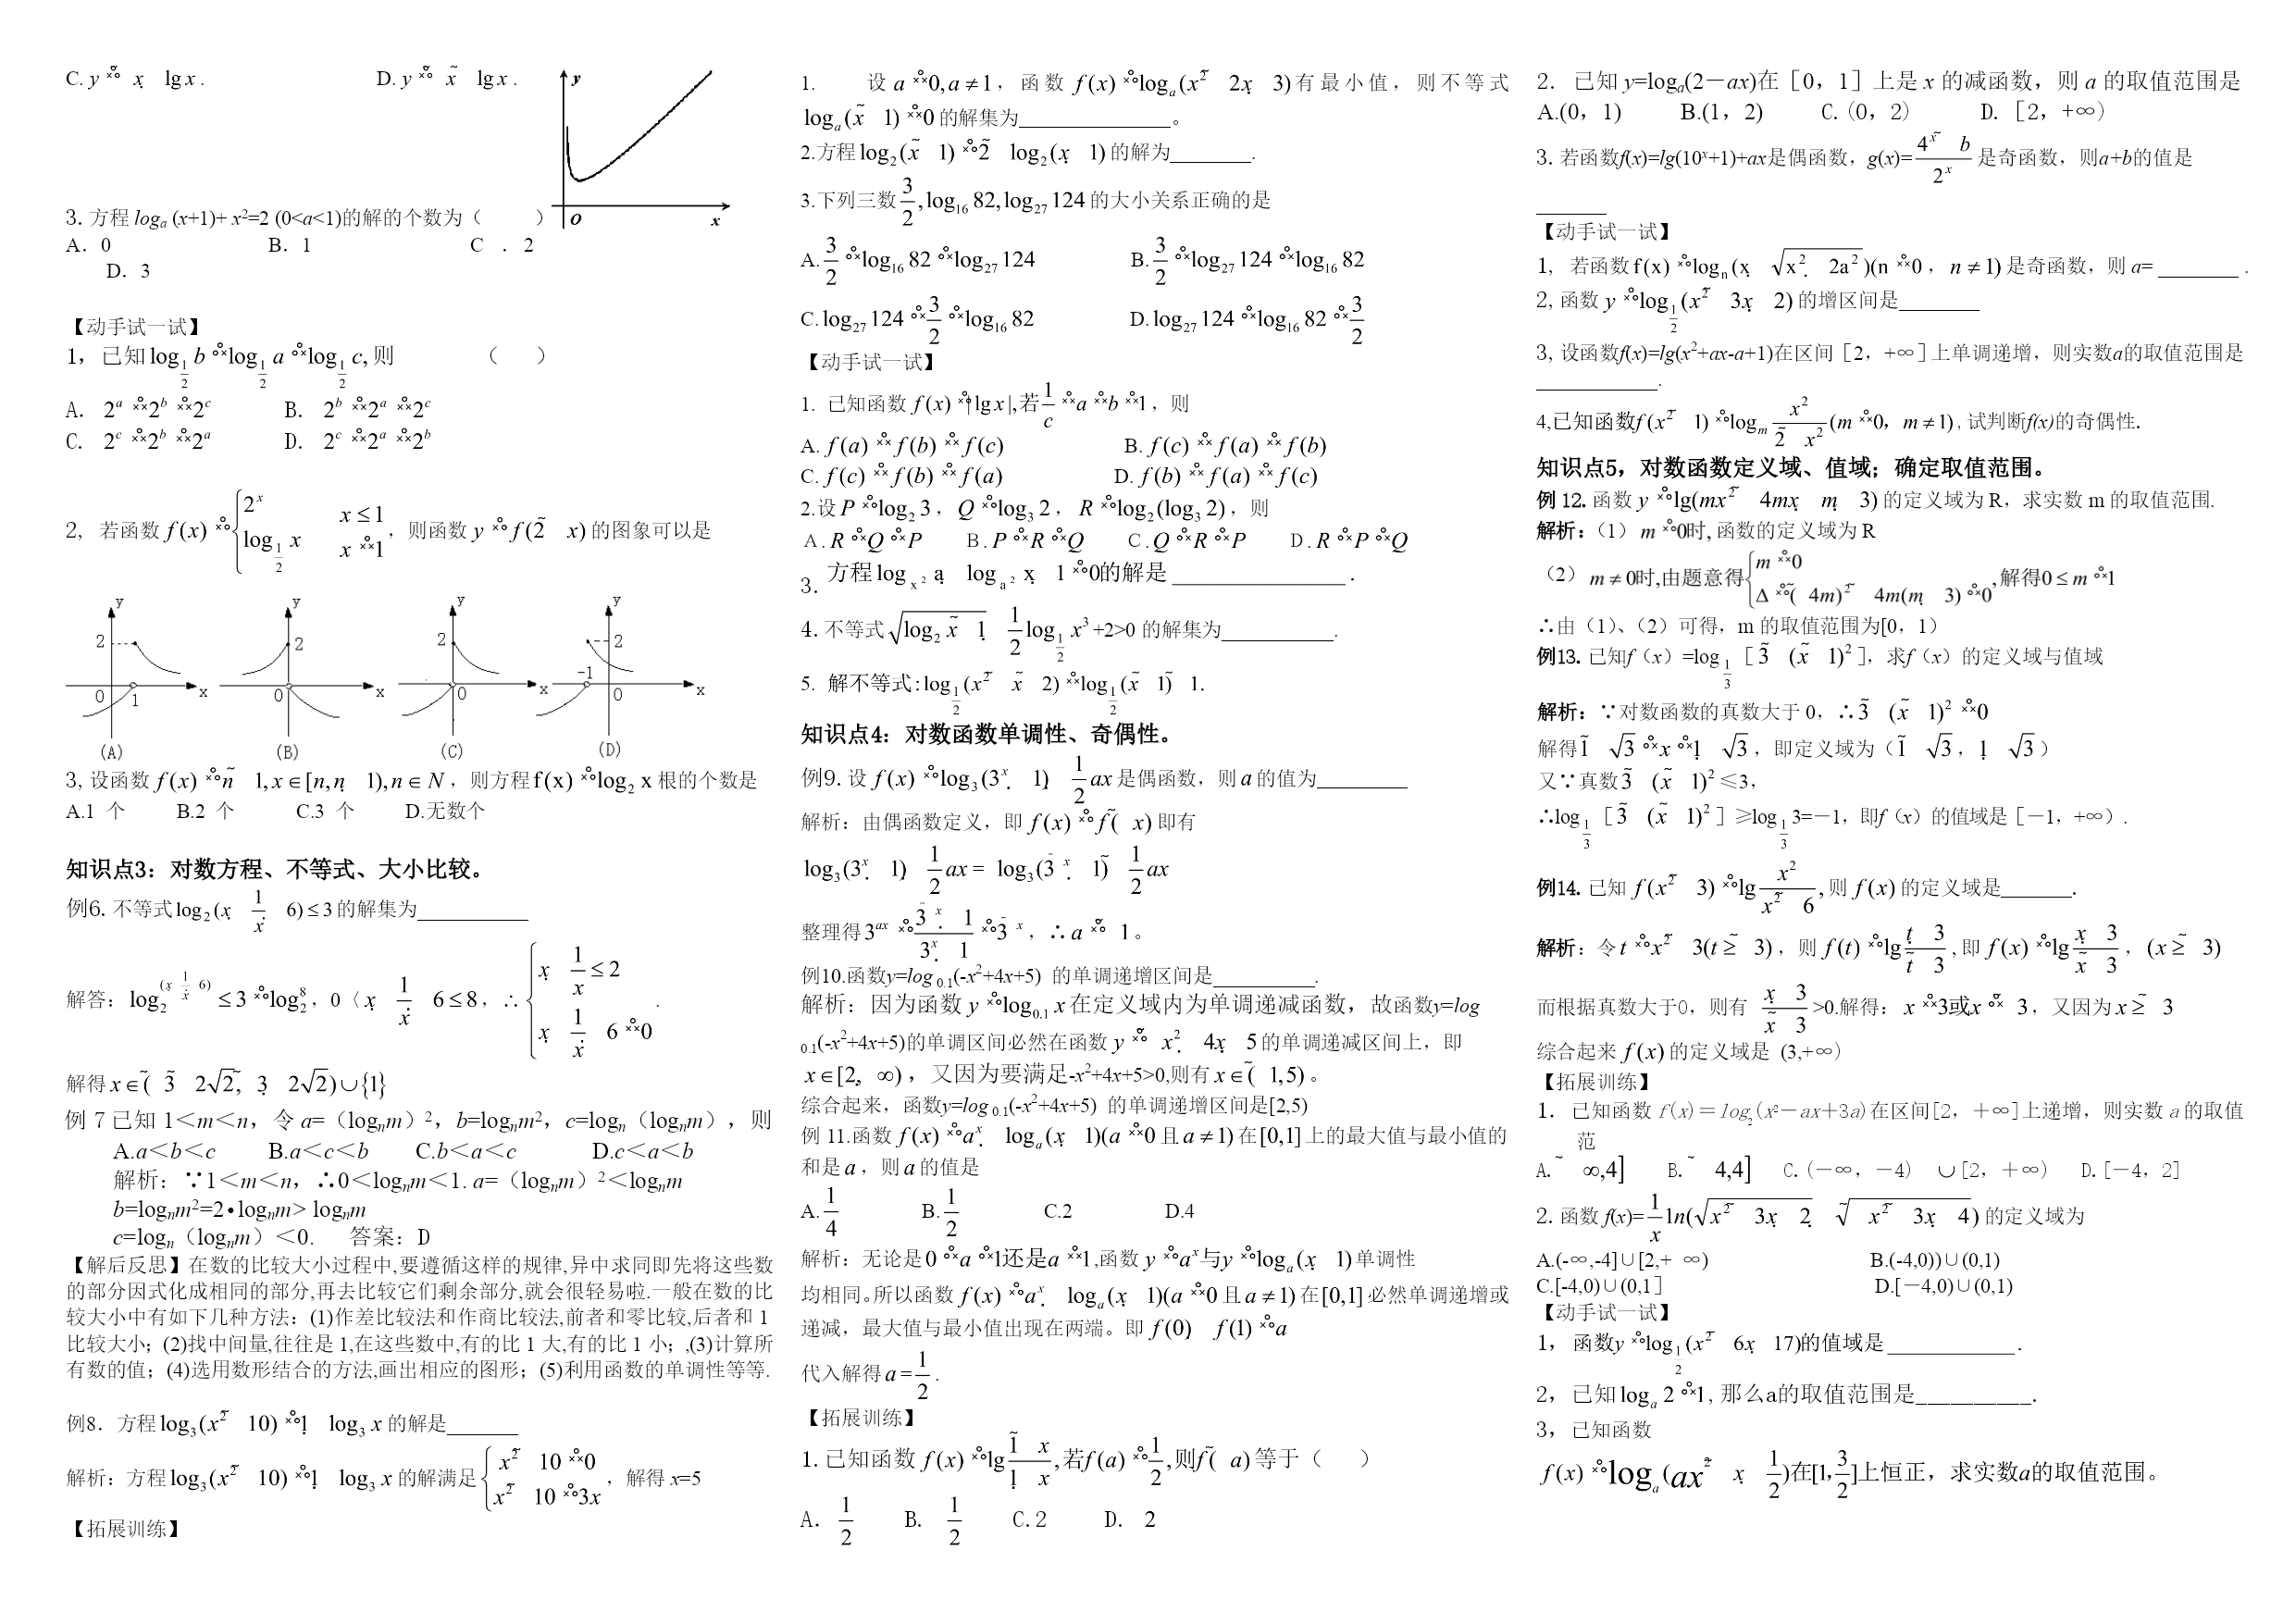 C. y = x lg x .    D. y = x lg x .
y
O
x
3. 方程 logₐ (x+1)+ x²=2 (0<a<1)的解的个数为（    ）
A．0    B．1    C ．2
D．3
【动手试一试】
1，已知 log_{1/2} b < log_{1/2} a < log_{1/2} c, 则    （    ）
A． 2^a > 2^b > 2^c    B． 2^b > 2^a > 2^c
C． 2^c > 2^b > 2^a    D． 2^c > 2^a > 2^b
2, 若函数 f(x) = { 2^x    x ≤ 1
log_{1/2} x    x > 1 , 则函数 y = f(2 x) 的图象可以是
y 2 0 1 x (A)
y 2 0 x (B)
y 2 0 x (C)
y 2 -1 0 x (D)
3, 设函数 f(x) = n 1, x ∈ [n, n 1), n ∈ N ，则方程 f(x) = log₂ x 根的个数是
A.1 个    B.2 个    C.3 个    D.无数个
知识点3：对数方程、不等式、大小比较。
例6. 不等式 log₂(x 1/x 6) ≤ 3 的解集为__________
解答：log₂^(x 1/x 6) ≤ 3 = log₂^8，0〈 x 1/x 6 ≤ 8，∴ { x 1/x ≤ 2
x 1/x 6 > 0 .
解得 x ∈ ( 3 2√2, 3 2√2) ∪ {1}
例 7 已知 1＜m＜n，令 a=（logₙm）²，b=logₙm²，c=logₙ（logₙm），则
A.a＜b＜c    B.a＜c＜b    C.b＜a＜c    D.c＜a＜b
解析：∵1＜m＜n，∴0＜logₙm＜1. a=（logₙm）²＜logₙm
b=logₙm²=2•logₙm> logₙm
c=logₙ（logₙm）＜0.    答案：D
【解后反思】在数的比较大小过程中,要遵循这样的规律,异中求同即先将这些数
的部分因式化成相同的部分,再去比较它们剩余部分,就会很轻易啦.一般在数的比
较大小中有如下几种方法：(1)作差比较法和作商比较法,前者和零比较,后者和 1
比较大小；(2)找中间量,往往是 1,在这些数中,有的比 1 大,有的比 1 小；,(3)计算所
有数的值；(4)选用数形结合的方法,画出相应的图形；(5)利用函数的单调性等等.
例8．方程 log₃(x² 10) = 1 log₃ x 的解是_______
解析：方程 log₃(x² 10) = 1 log₃ x 的解满足 { x² 10 > 0
x² 10 = 3x ，解得 x=5
【拓展训练】
1. 设 a > 0, a ≠ 1，函数 f(x) = logₐ(x² 2x 3) 有最小值，则不等式
logₐ(x 1) > 0 的解集为_______________。
2.方程 log₂(x 1) = 2 log₂(x 1) 的解为________.
3.下列三数 3/2 , log₁₆ 82, log₂₇ 124 的大小关系正确的是
A. 3/2 < log₁₆ 82 < log₂₇ 124    B. 3/2 < log₂₇ 124 < log₁₆ 82
C. log₂₇ 124 < 3/2 < log₁₆ 82    D. log₂₇ 124 < log₁₆ 82 < 3/2
【动手试一试】
1. 已知函数 f(x) = | lg x |,若 1/c > a > b > 1 ，则
A. f(a) > f(b) > f(c)    B. f(c) > f(a) > f(b)
C. f(c) > f(b) > f(a)    D. f(b) > f(a) > f(c)
2.设 P = log₂ 3 ， Q = log₃ 2 ， R = log₂(log₃ 2) ，则
A. R < Q < P    B. P < R < Q    C. Q < R < P    D. R < P < Q
3. 方程 log_{x²} a log_{a²} x 1 = 0的解是 ________________ .
4. 不等式 √(log₂ x 1) 1/2 log_{1/2} x³ +2>0 的解集为___________.
5. 解不等式: log_{1/2}(x² x 2) > log_{1/2}(x 1) 1.
知识点4：对数函数单调性、奇偶性。
例9. 设 f(x) = log₃(3^x 1) 1/2 ax 是偶函数，则 a 的值为_________
解析：由偶函数定义，即 f(x) = f( x) 即有
log₃(3^x 1) 1/2 ax = log₃(3^x 1) 1/2 ax
整理得 3^{ax} = (3^x 1)/(3^x 1) = 3^x ，∴ a = 1 。
例10.函数y=log ₀.₁(-x²+4x+5) 的单调递增区间是__________.
解析：因为函数 y = log₀.₁ x 在定义域内为单调递减函数，故函数y=log
₀.₁(-x²+4x+5)的单调区间必然在函数 y = x² 4x 5 的单调递减区间上，即
x ∈ [2, ∞) ，又因为要满足-x²+4x+5>0,则有 x ∈ ( 1,5) 。
综合起来，函数y=log ₀.₁(-x²+4x+5) 的单调递增区间是[2,5)
例 11.函数 f(x) = a^x logₐ(x 1)(a > 0 且 a ≠ 1) 在 [0,1] 上的最大值与最小值的
和是 a ，则 a 的值是
A. 1/4    B. 1/2    C.2    D.4
解析：无论是 0 < a < 1还是a > 1 ,函数 y = a^x 与 y = logₐ(x 1) 单调性
均相同。所以函数 f(x) = a^x logₐ(x 1)(a > 0 且 a ≠ 1) 在 [0,1] 必然单调递增或
递减，最大值与最小值出现在两端。即 f(0) f(1) = a
代入解得 a = 1/2 .
【拓展训练】
1. 已知函数 f(x) = lg (1 x)/(1 x) ,若f(a) = 1/2 ,则f( a) 等于（    ）
A． 1/2    B． 1/2    C.2    D． 2
2. 已知 y=logₐ(2－ax)在［0，1］上是 x 的减函数，则 a 的取值范围是
A.(0，1)    B.(1，2)    C.（0，2）    D.［2，+∞）
3. 若函数f(x)=lg(10^x+1)+ax是偶函数，g(x)= (4^x b)/2^x 是奇函数，则a+b的值是
_______
【动手试一试】
1, 若函数 f(x) = logₙ(x √(x² 2a²))(n > 0 ， n ≠ 1) 是奇函数，则 a= ________ .
2, 函数 y = log_{1/2}(x² 3x 2) 的增区间是________
3, 设函数f(x)=lg(x²+ax-a+1)在区间［2，+∞］上单调递增，则实数a的取值范围是
____________.
4,已知函数f(x² 1) = logₘ x²/(2 x²) (m > 0，m ≠ 1) , 试判断f(x)的奇偶性．
知识点5，对数函数定义域、值域；确定取值范围。
例 12. 函数 y = lg(mx² 4mx m 3) 的定义域为 R，求实数 m 的取值范围.
解析：（1） m = 0时, 函数的定义域为 R
（2） m ≠ 0时,由题意得 { m > 0
Δ = ( 4m)² 4m(m 3) < 0 , 解得0 ≤ m < 1
∴由（1）、（2）可得，m 的取值范围为[0，1）
例13. 已知f（x）=log_{1/3}［3 (x 1)²］，求f（x）的定义域与值域
解析：∵对数函数的真数大于 0，∴ 3 (x 1)² > 0
解得 1 √3 < x < 1 √3 ，即定义域为（1 √3 ，1 √3 ）
又∵真数 3 (x 1)² ≤3，
∴log_{1/3}［3 (x 1)²］≥log_{1/3} 3=－1，即f（x）的值域是［－1，+∞）.
例14. 已知 f(x² 3) = lg x²/(x² 6) , 则 f(x) 的定义域是_______.
解析：令 t = x² 3(t ≥ 3) ，则 f(t) = lg (t 3)/(t 3) , 即 f(x) = lg (x 3)/(x 3) ， (x ≥ 3)
而根据真数大于0，则有 (x 3)/(x 3) >0.解得： x > 3或x < 3，又因为 x ≥ 3
综合起来 f(x) 的定义域是 (3,+∞）
【拓展训练】
1．已知函数 f(x)＝log₂(x²－ax＋3a)在区间[2，＋∞]上递增，则实数 a 的取值
范
A. ∞,4]    B. 4,4]    C.(－∞，－4) ∪[2，＋∞)    D.[－4，2]
2. 函数 f(x)= 1/x ln(√(x² 3x 2) √(x² 3x 4)) 的定义域为
A.(-∞,-4]∪[2,+ ∞)    B.(-4,0))∪(0,1)
C.[-4,0)∪(0,1］    D.[－4,0)∪(0,1)
【动手试一试】
1，函数y = log_{1/2}(x² 6x 17)的值域是 ____________.
2，已知 logₐ 2 > 1 , 那么a的取值范围是__________.
3，已知函数
f(x) = logₐ(ax² x 1/2)在[1, 3/2]上恒正，求实数a的取值范围。